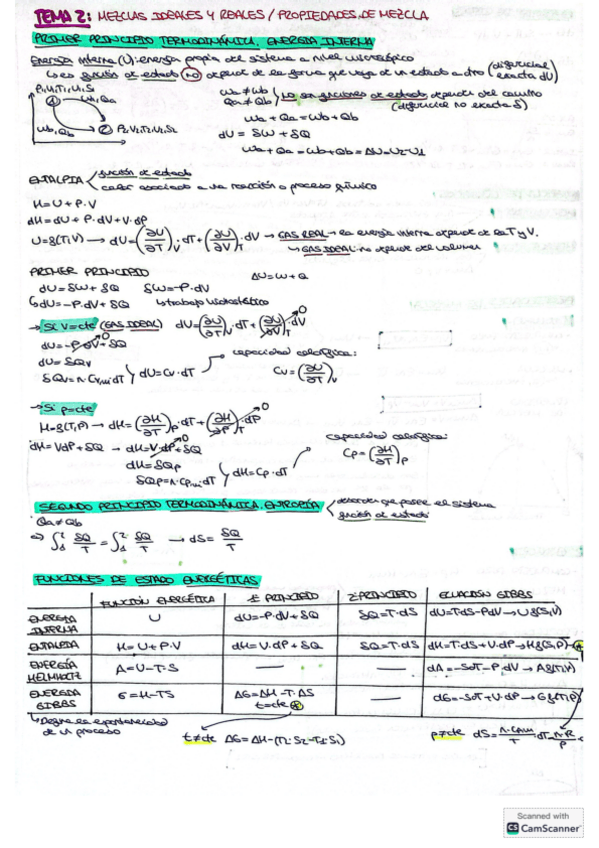 TEMA 2: MEZCLAS IDEALES Y REALES / PROPIEDADES DE MEZCLA
PRIMER PRINCIPIO TERMODINÁMICA. ENERGÍA INTERNA
Energía interna (U): energía propia del sistema a nivel microscópico
↳ es función de estado NO depende de la forma que vaya de un estado a otro (diferencial exacta dU)
P1,U1,T1,V1,S1
① Wa, Qa
Wb, Qb ② P2,V2,T2,U2,S2
Wa ≠ Wb
Qa ≠ Qb
No son funciones de estado, depende del camino
(diferencial no exacta δ)
Wa + Qa = Wb + Qb
dU = δW + δQ
Wa + Qa = Wb + Qb = ΔU = U2 - U1
ENTALPÍA función de estado
calor asociado a una reacción o proceso químico
H = U + P·V
dH = dU + P·dV + V·dP
U = f(T,V) → dU = (∂U/∂T)V · dT + (∂U/∂V)T · dV → GAS REAL → la energía interna depende de la T y V.
↳ GAS IDEAL: no depende del volumen
PRIMER PRINCIPIO ΔU = W + Q
dU = δW + δQ δW = -P·dV
↳ dU = -P·dV + δQ ↳ trabajo
→ Si V = cte (GAS IDEAL) dU = (∂U/∂T)V · dT + (∂U/∂V)T · dV 0
dU = -P·dV + δQ 0
dU = δQv
δQv = n·Cv,m·dT
dU = Cv·dT
capacidad calorífica:
Cv = (∂U/∂T)V
→ Si p = cte
H = f(T,P) → dH = (∂H/∂T)P · dT + (∂H/∂P)T · dP 0
dH = VdP + δQ → dH = V·dP + δQ 0
dH = δQp
δQp = n·Cp,m·dT
dH = Cp·dT
capacidad calorífica:
Cp = (∂H/∂T)P
SEGUNDO PRINCIPIO TERMODINÁMICA. ENTROPÍA desorden que posee el sistema
función de estado
Qa ≠ Qb
⇒ ∫₁² δQ/T = ∫₁² δQ/T → dS = δQ/T
FUNCIONES DE ESTADO ENERGÉTICAS
FUNCIÓN ENERGÉTICA 1º PRINCIPIO 2º PRINCIPIO ECUACIÓN GIBBS
ENERGÍA INTERNA U dU = -P·dV + δQ δQ = T·dS dU = T·dS - P·dV → U f(S,V)
ENTALPÍA H = U + P·V dH = V·dP + δQ δQ = T·dS dH = T·dS + V·dP → H f(S,P)
ENERGÍA HELMHOLTZ A = U - T·S — — dA = -SdT - P·dV → A f(T,V)
ENERGÍA GIBBS G = H - TS ΔG = ΔH - T·ΔS — dG = -SdT + V·dP → G f(T,P)
t = cte
↳ Determina la espontaneidad
de un proceso
t ≠ cte ΔG = ΔH - (T2·S2 - T1·S1)
p ≠ cte dS = n·Cp,m/T · dT - n·R/P
Scanned with
CS CamScanner